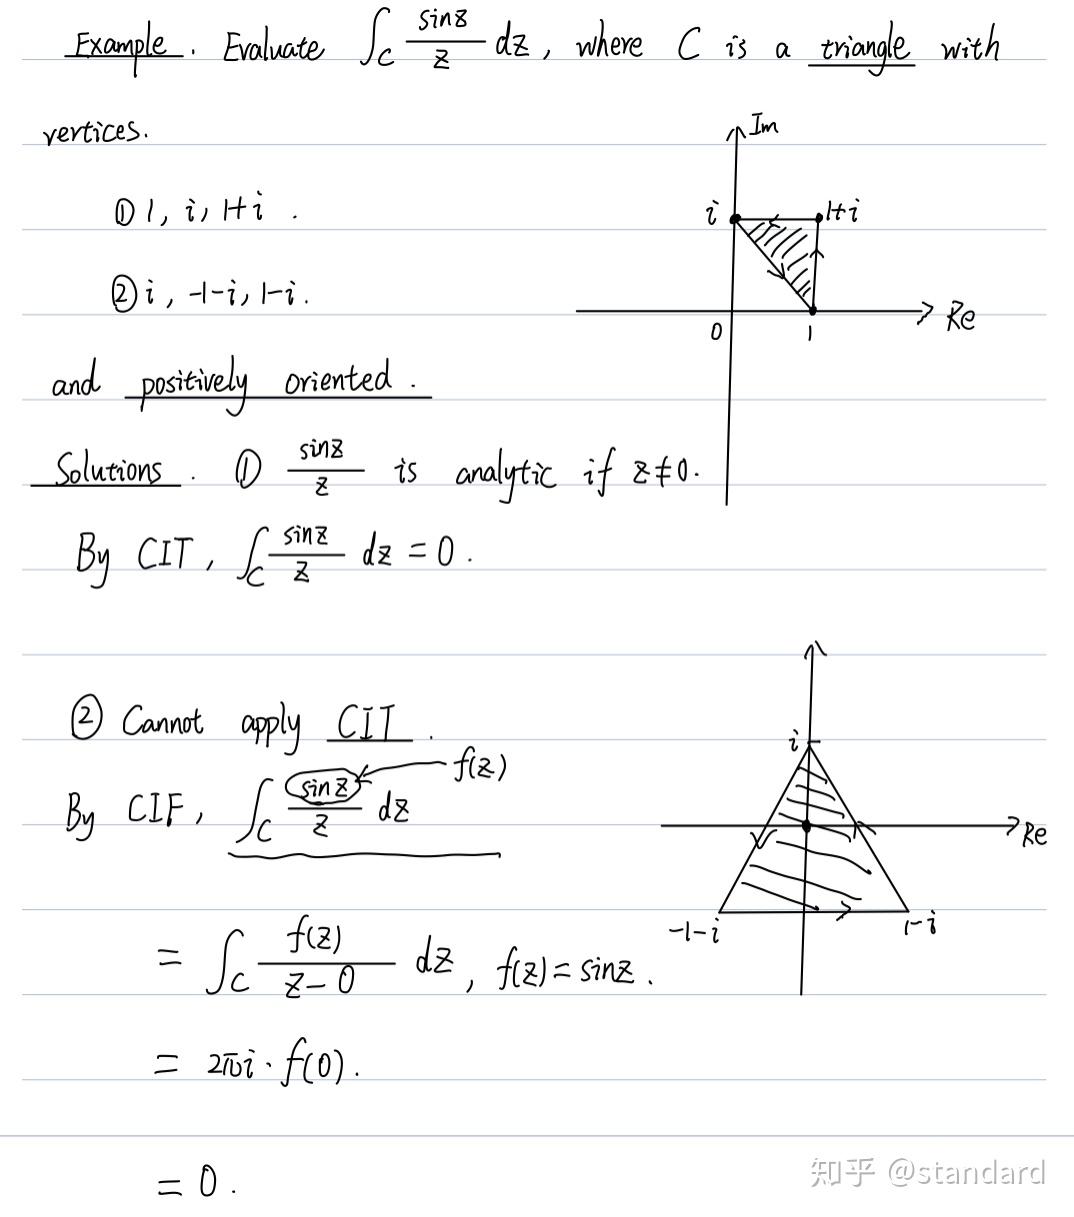 Example. Evaluate ∫_C sinz/z dz, where C is a triangle with
vertices.
Im
① 1, i, 1+i .
i 1+i
② i, -1-i, 1-i.
Re
0 1
and positively oriented.
Solutions. ① sinz/z is analytic if z≠0.
By CIT, ∫_C sinz/z dz = 0.
② Cannot apply CIT.
i
By CIF, ∫_C sinz/z dz f(z)
Re
-1-i 1-i
= ∫_C f(z)/(z-0) dz, f(z)=sinz.
= 2πi·f(0).
= 0.
知乎 @standard